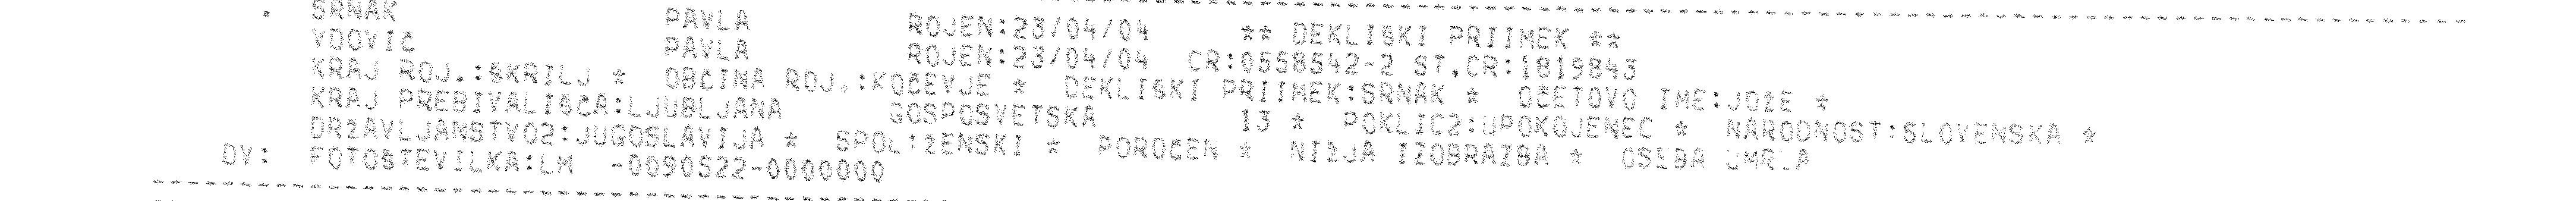 . SRNAK PAVLA ROJEN:23/04/04 ** DEKLIŠKI PRIIMEK **
VDOVIČ PAVLA ROJEN:23/04/04 CR:0558542-2 ST.CR:1819843
KRAJ ROJ.:ŠKRILJ * OBČINA ROJ.:KOČEVJE * DEKLIŠKI PRIIMEK:SRNAK * OČETOVO IME:JOŽE *
KRAJ PREBIVALIŠČA:LJUBLJANA GOSPOSVETSKA 13 * POKLIC2:UPOKOJENEC * NARODNOST:SLOVENSKA *
DRŽAVLJANSTVO2:JUGOSLAVIJA * SPOL:ŽENSKI * POROČEN * NIŽJA IZOBRAZBA * OSEBA UMRLA
DV: FOTOŠTEVILKA:LM -0090522-0000000